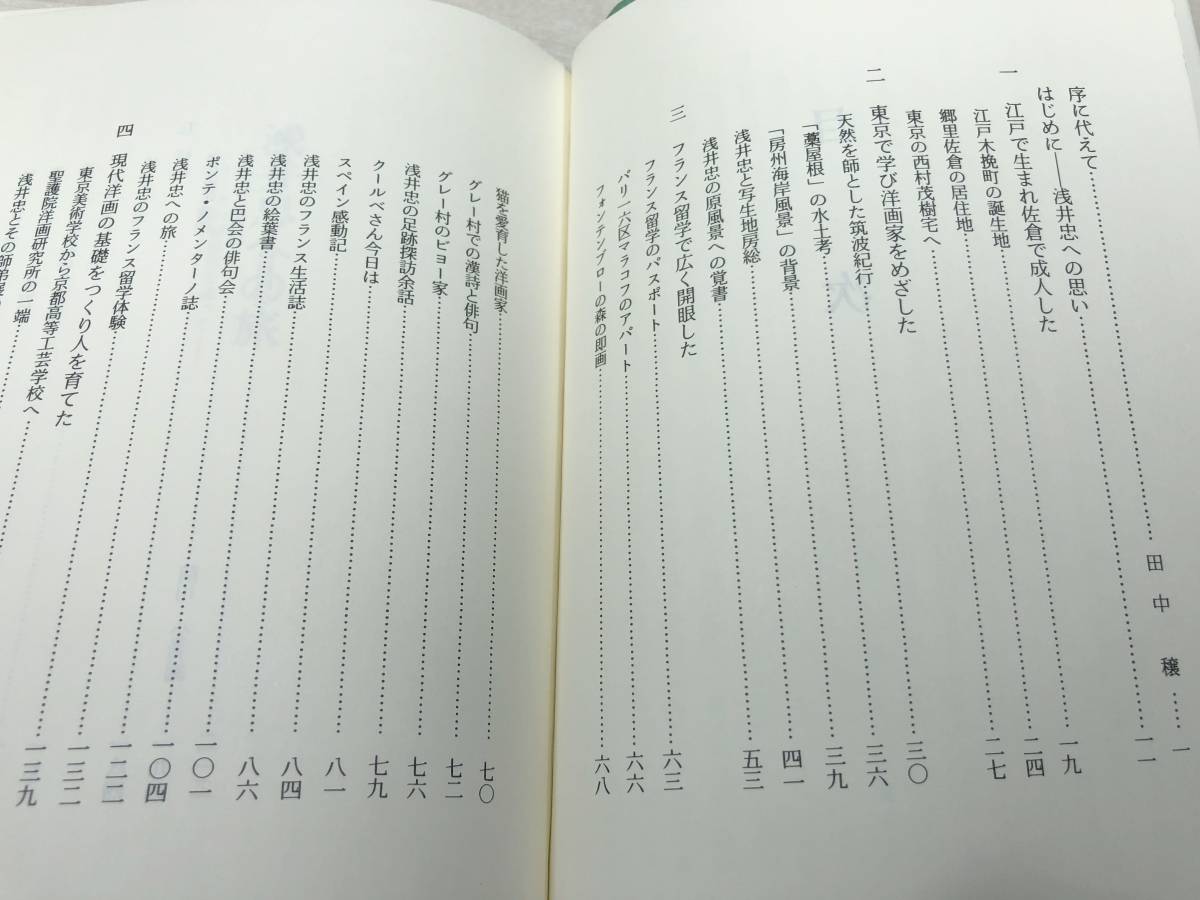 目次
序に代えて……………田中 穣…一
はじめに――浅井忠への思い……………一一
一 江戸で生まれ佐倉で成人した
江戸木挽町の誕生地……………一九
郷里佐倉の居住地……………二四
東京の西村茂樹宅へ……………二七
二 東京で学び洋画家をめざした
天然を師とした筑波紀行……………三〇
「藁屋根」の水土考……………三六
「房州海岸風景」の背景……………三九
浅井忠と写生地房総……………四一
浅井忠の原風景への覚書……………五三
三 フランス留学で広く開眼した
フランス留学のパスポート……………六三
パリ一六区マラコフのアパート……………六六
フォンテンブローの森の即画……………六八
猫を愛育した洋画家……………七〇
グレー村での漢詩と俳句……………七二
グレー村のビヨー家……………七六
浅井忠の足跡探訪余話……………七九
クールベさん今日は……………八一
スペイン感動記……………八四
浅井忠のフランス生活誌……………八六
浅井忠の絵葉書……………一〇一
浅井忠と巴会の俳句会……………一〇四
ポンテ・ノメンターノ誌……………一二二
浅井忠への旅……………一三二
浅井忠のフランス留学体験……………一三九
四 現代洋画の基礎をつくり人を育てた
東京美術学校から京都高等工芸学校へ
聖護院洋画研究所の一端
浅井忠とその師弟